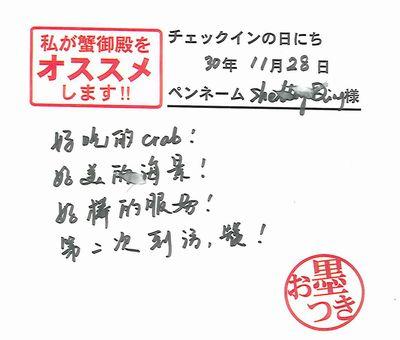 私が蟹御殿を
オススメ
します!!
チェックインの日にち
30年 11月 28日
ペンネーム 様
好吃的crab!
好美的海景!
好棒的服務!
第二次到訪,讚!
お墨
つき